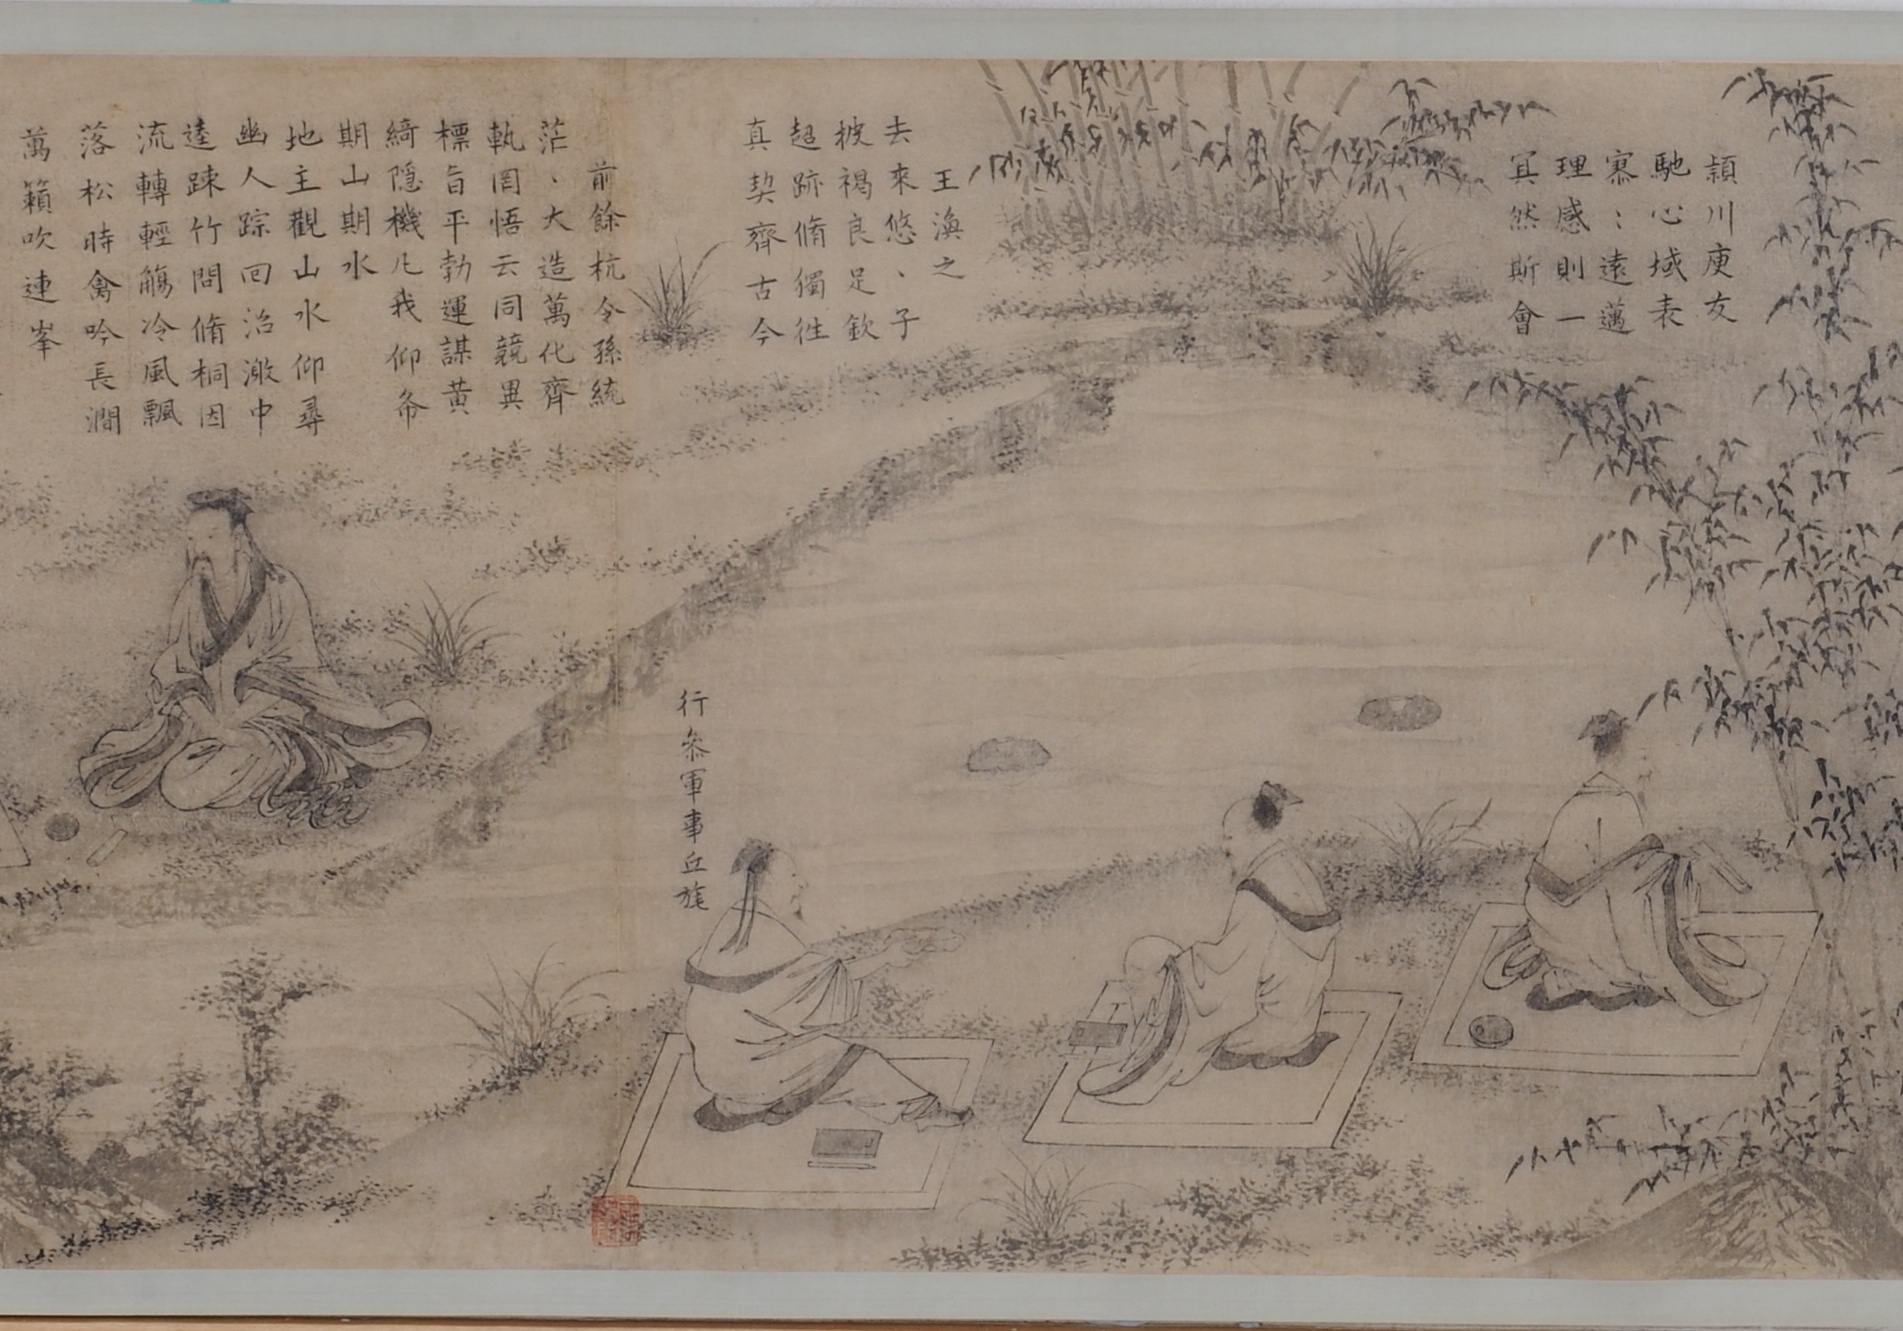 潁川庾友
馳心域表
寥〻遠邁
理感則一
冥然斯會
王渙之
去來悠、子
披褐良足欽
超跡脩獨往
真契齊古今
行叅軍事丘旄
前餘杭令孫統
茫、大造萬化齊
軌罔悟云同競異
標旨平勃運謀黃
綺隱機凡我仰希
期山期水
地主觀山水仰尋
幽人踪回沼激中
逵踈竹間脩桐因
流轉輕觴冷風飄
落松時禽吟長澗
萬籟吹連峯